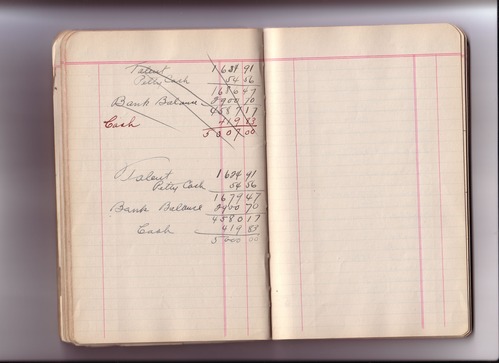 Talent 1631 91
Petty Cash 54 56
1686 47
Bank Balance 2900 70
4587 17
Cash 419 83
5007 00
Talent 1624 91
Petty Cash 54 56
1679 47
Bank Balance 2900 70
4580 17
Cash 419 83
5000 00